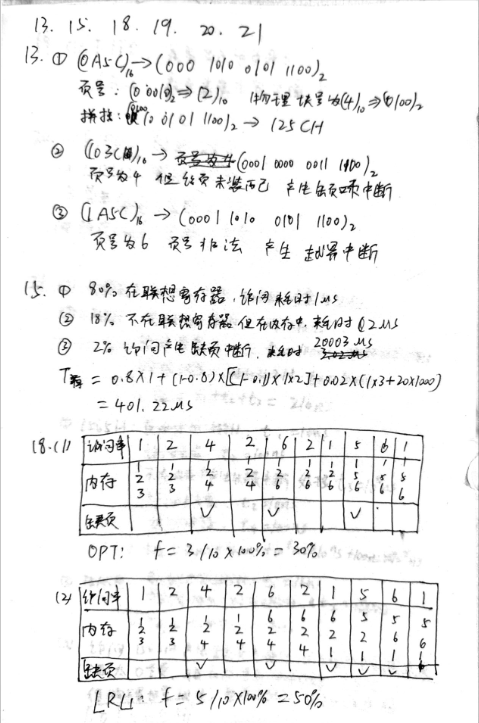 13. 15. 18. 19. 20. 21
13. ① (0A5C)₁₆→(000 1010 0101 1100)₂
页号: (00010)₂⇒(2)₁₀ 物理块号为(4)₁₀⇒(0100)₂
拼接: 0101 1100)₂ → 125CH
② (103C)₁₆→ (0001 0000 0011 1100)₂
页号为4 但该页未装入 产生缺页中断
③ (1A5C)₁₆ → (0001 1010 0101 1100)₂
页号为6 页号非法 产生越界中断
15. ① 80% 在联想寄存器,访问耗时1μs
② 18% 不在联想寄存器 但在内存中,耗时2μs
③ 2% 访问产生缺页中断, 耗时 20003μs
T = 0.8×1 + (1-0.8)×[(1-0.1)×1×2]+0.02×(1×3+20×1000)
= 401.22μs
18.(1) 访问串 1 2 4 2 6 2 1 5 6 1
内存 1 1 1 1 1 1 1 1 1 1
2 2 2 2 2 2 2 5 5 5
3 3 4 4 6 6 6 6 6 6
缺页 ✓ ✓ ✓
OPT: f = 3/10×100% = 30%
(2) 访问串 1 2 4 2 6 2 1 5 6 1
内存 1 1 1 1 6 6 6 5 5 5
2 2 2 2 2 2 2 2 6 6
3 3 4 4 4 4 1 1 1 1
缺页 ✓ ✓ ✓ ✓ ✓
LRU: f = 5/10×100% = 50%